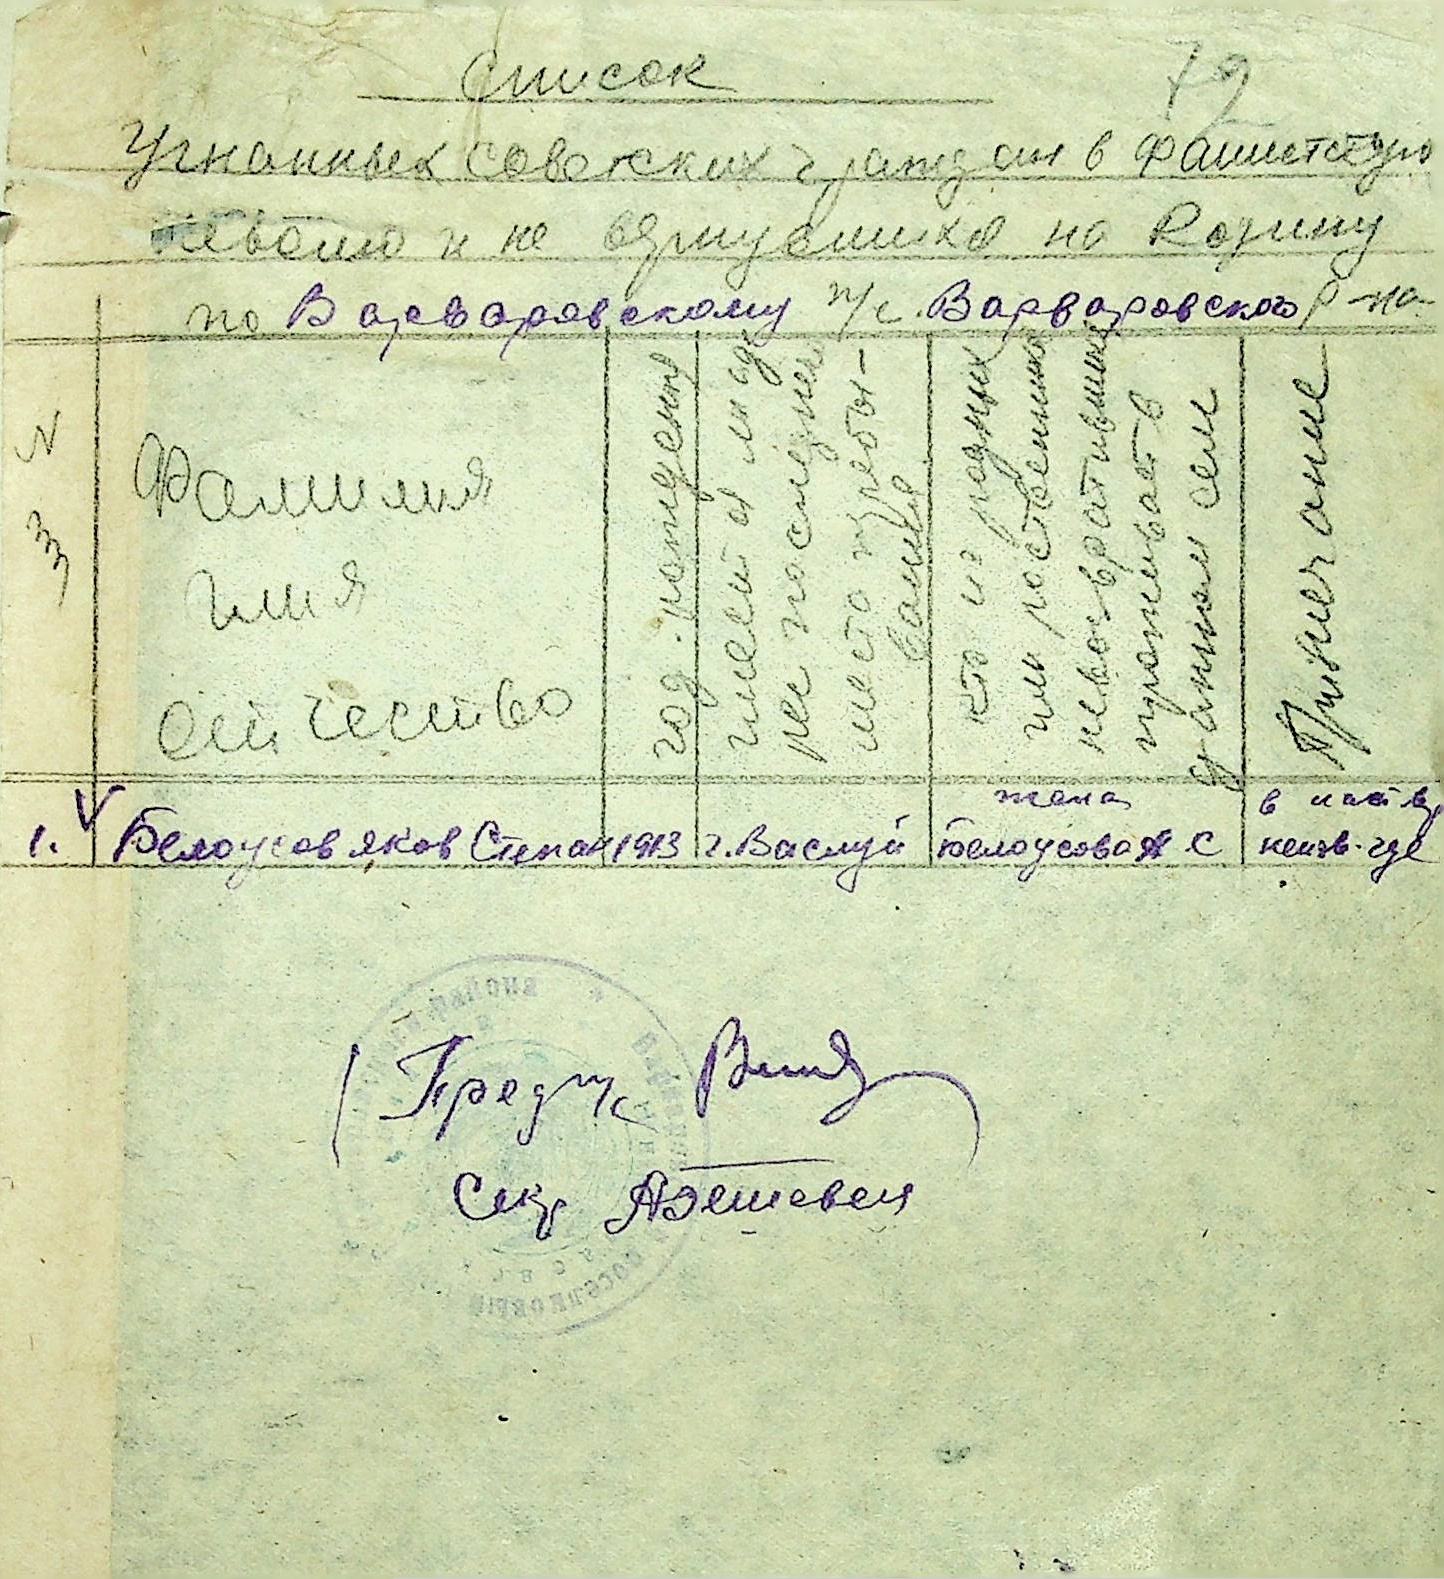 Список
79
Угнанных советских граждан в фашистскую
неволю и не вернувшихся на Родину
по Варваровскому п/с. Варваровского р-на
N
Фамилия
Имя
Отчество
год. рождения
имеется ли адрес последнее место пребывания
кто из родных или родственников невозвратившихся проживает в данном селе
Примечание
1. V Белоусов Яков Степан 1913 г. Васлуй жена Белоусова А С в наст вр. неизв. где
Пред п/с
Секр
поселковый